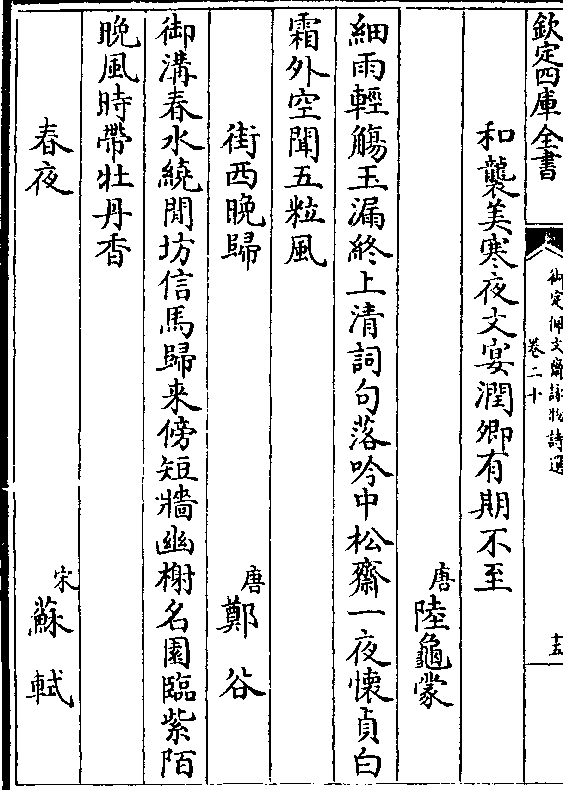 欽定四庫全書
御定佩文齋詠物詩選
卷二十
十五
和襲美寒夜文宴潤卿有期不至
唐陸龜蒙
細雨輕觴玉漏終上清詞句落吟中松齋一夜懷貞白
霜外空聞五粒風
街西晚歸
唐鄭谷
御溝春水繞閒坊信馬歸来傍短牆幽榭名園臨紫陌
晚風時帶牡丹香
春夜
宋蘇軾